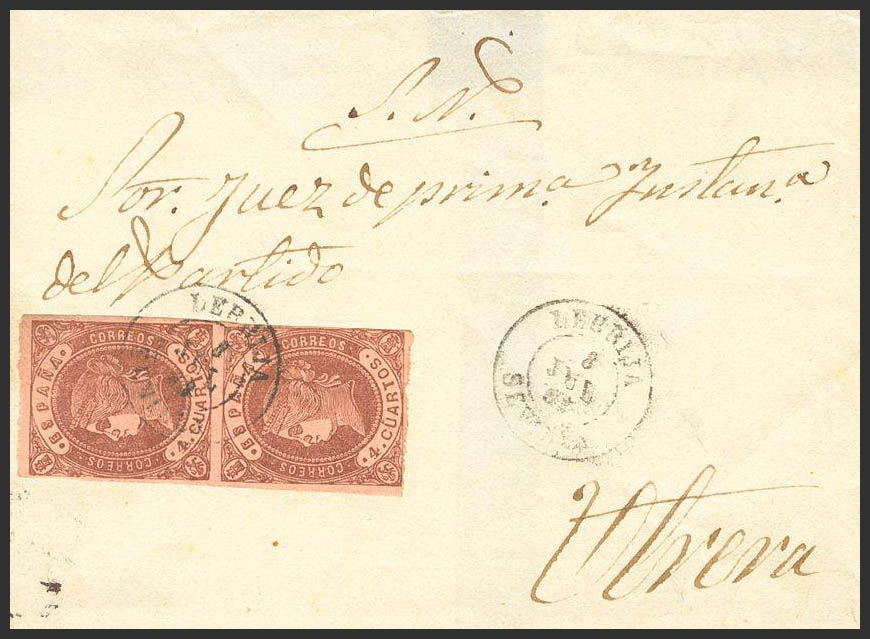 S. N.
Sor. Juez de prim.a Ynstan.a
del Partido
LEBRIJA
CORREOS
ESPAÑA
4. CUARTOS
CORREOS
CORREOS
ESPAÑA
4. CUARTOS
CORREOS
LEBRIJA
8
JUL
SEVILLA
Utrera